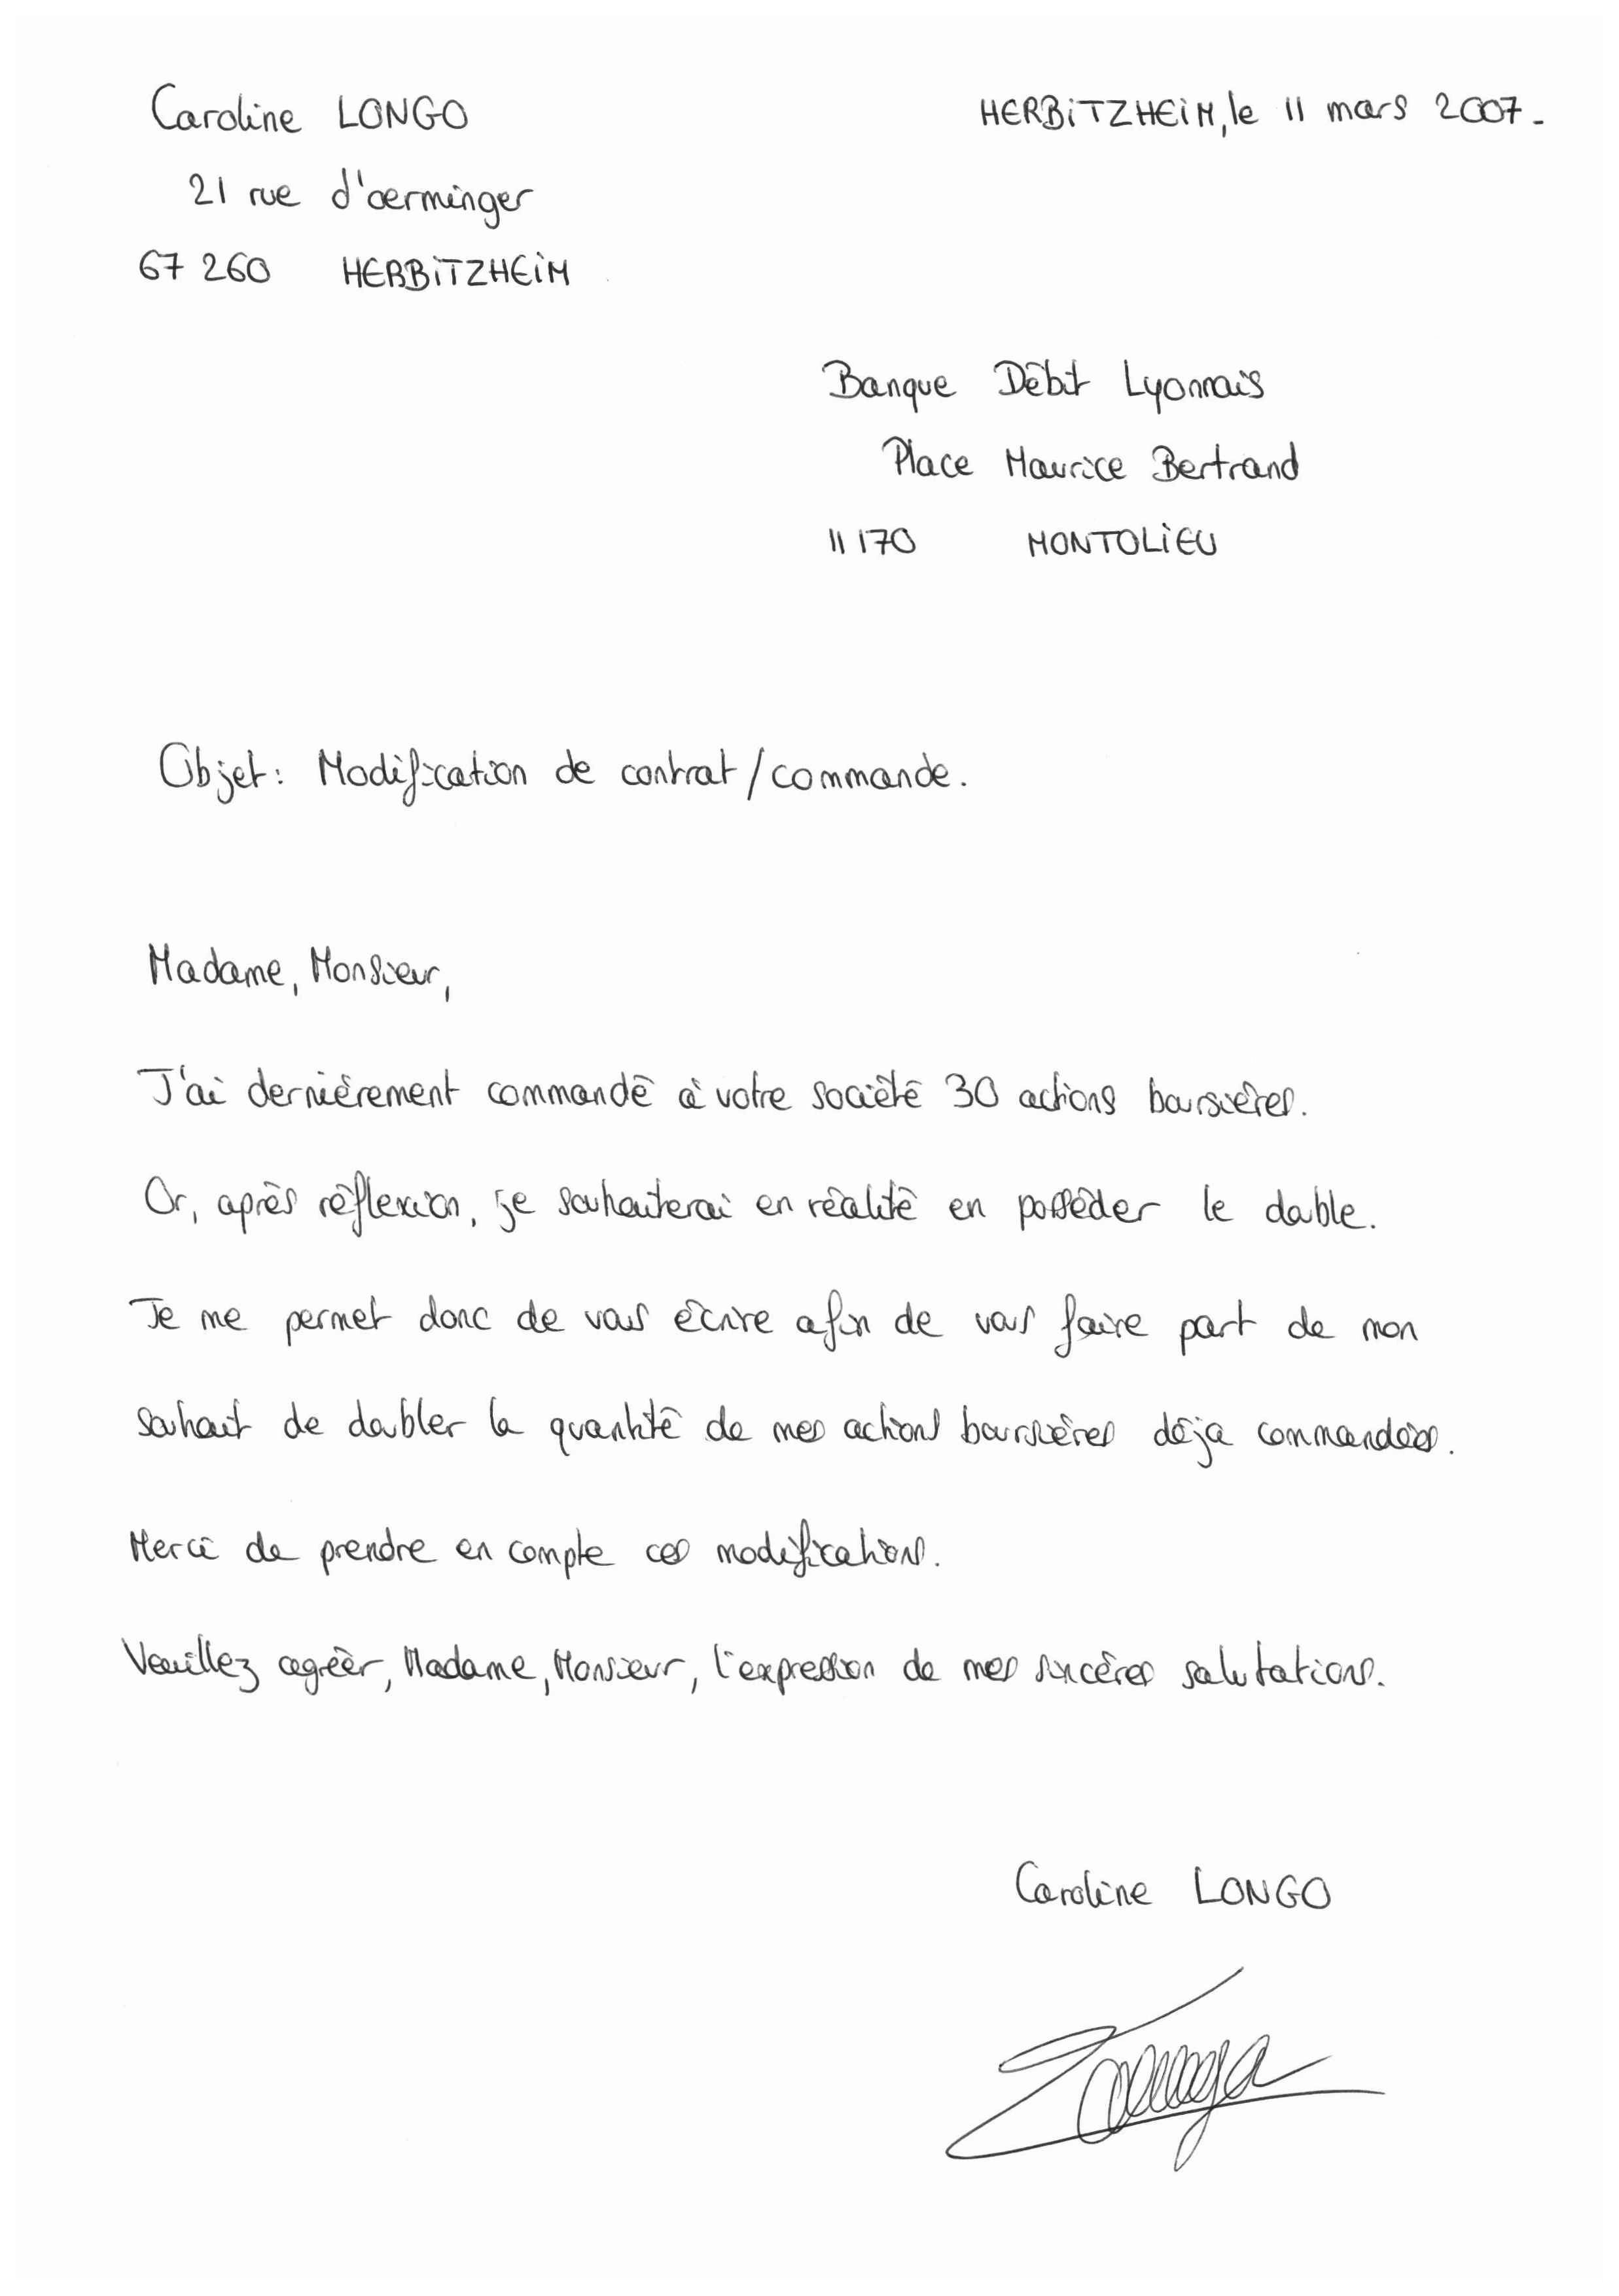 Caroline LONGO
HERBITZHEIM, le 11 mars 2007.
21 rue d'oerminger
67 260 HERBITZHEIM
Banque Débit Lyonnais
Place Maurice Bertrand
11 170 MONTOLIEU
Objet : Modification de contrat / commande.
Madame, Monsieur,
J'ai dernièrement commandé à votre société 30 actions boursières.
Or, après réflexion, je souhaiterai en réalité en posséder le double.
Je me permet donc de vous écrire afin de vous faire part de mon
souhait de doubler la quantité de mes actions boursières déja commandées.
Merci de prendre en compte ces modifications.
Veuillez agréer, Madame, Monsieur, l'expression de mes sincères salutations.
Caroline LONGO